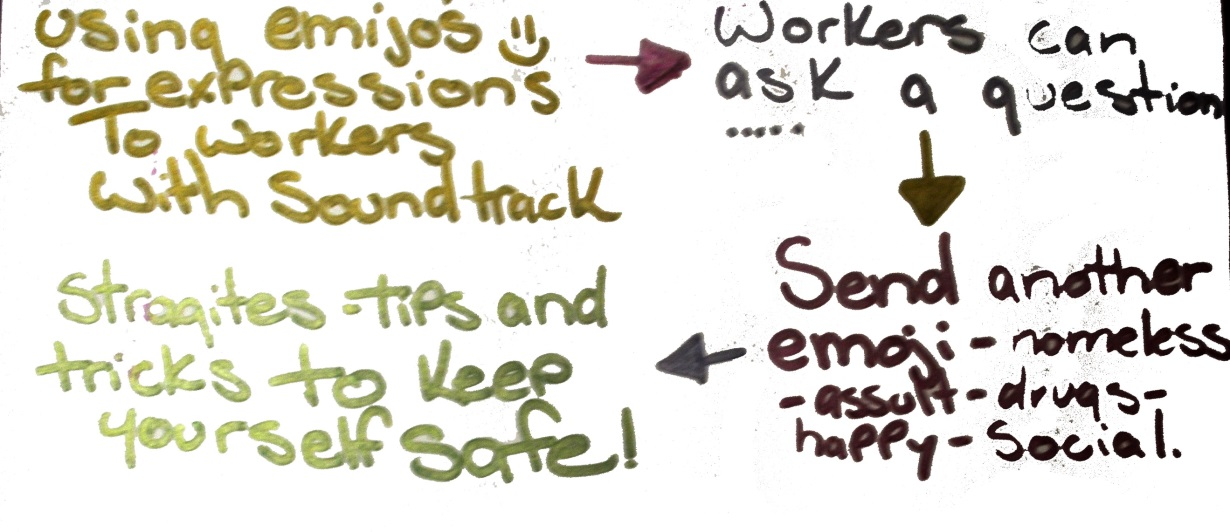 Using emijo's
for expressions
To workers
with Soundtrack
Workers can
ask a question
.....
Send another
emoji - homeless
- assult - drugs -
happy - Social.
Stragites - tips and
tricks to keep
yourself safe!